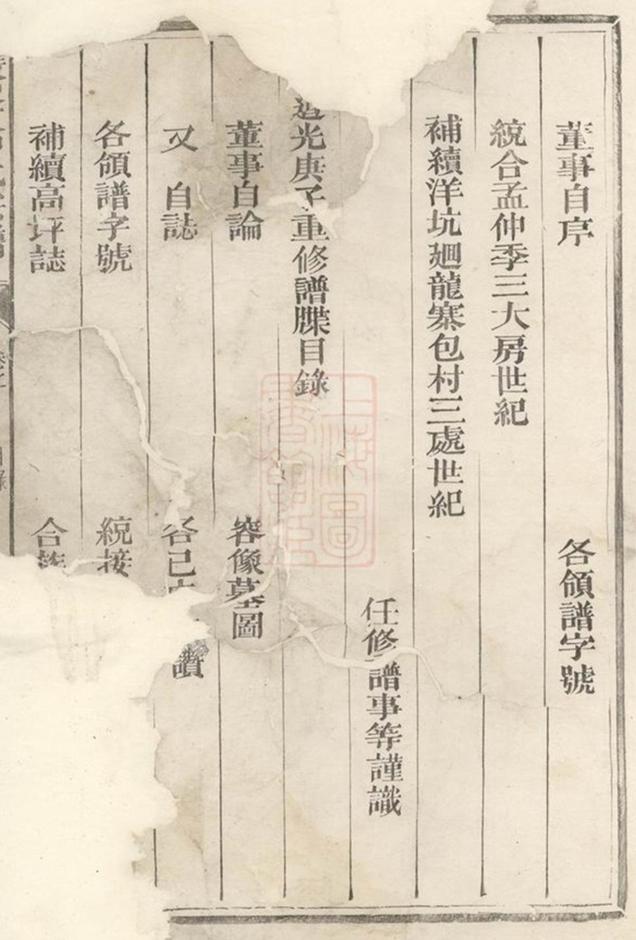 董事自序 各領譜字號
統合孟仲季三大房世紀
補續洋坑廻龍寨包村三處世紀
任修譜事等謹識
道光庚子重修譜牒目錄
董事自論 容像墓圖
又 自誌 各已 讚
各領譜字號 統接
補續高坪誌 合